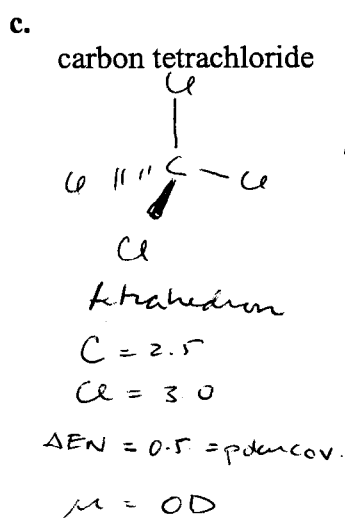 c.
carbon tetrachloride
Cl
Cl C Cl
Cl
tetrahedron
C = 2.5
Cl = 3.0
ΔEN = 0.5 = polar cov.
μ = 0D